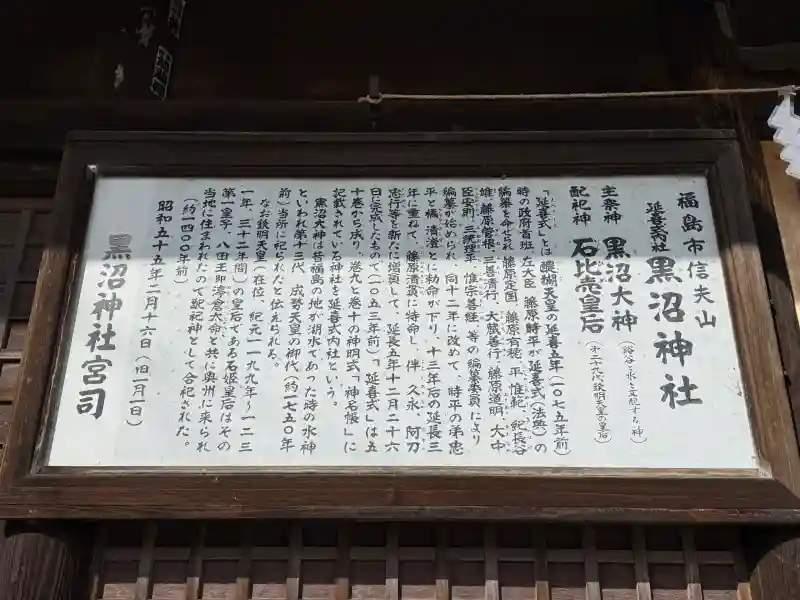 福島市信夫山
延喜式会社 黒沼神社
主祭神 黒沼大神 (谷と水を支配する神)
配祀神 石比売皇后 (第二十九代欽明天皇の皇后)
「延喜式」とは醍醐天皇の延喜五年(一〇七五年前)
時の政府首班 左大臣 藤原時平が延喜式(法典)の
編纂を命ぜられ 藤原定国、藤原有穂、平 惟範、紀長谷
雄、藤原菅根、三善清行、大蔵善行、藤原道明、大中
臣安則、三統理平、惟宗善経、等の編纂委員により
編纂が始められ、同十二年に改めて、時平の弟忠
平と橘 清澄とに勅命が下り、十三年后の延長三
年に重ねて、藤原清貫に特命し、伴 久永、阿刀
忠行等を新たに増員して、延長五年十二月二十六
日に完成したもので(一〇五三年前)「延喜式」は五
十巻から成り、巻九と巻十の神明式「神名帳」に
記載されている神社を延喜式内社という。
黒沼大神は昔福島の地が湖水であった時の水神
といわれ第十三代 成務天皇の御代、(約一七五〇年
前)当所に祀られたと伝えられる。
なお欽明天皇(在位、紀元一一九九年〜一二三
一年、三十二年間)の皇后である石姫皇后はその
第一皇子、八田王即淳倉太命と共に奥州に来られ
当地に住まわれたので配祀神として合祀された。
(約一四〇〇年前)
昭和五十五年二月十六日(旧一月一日)
黒沼神社宮司